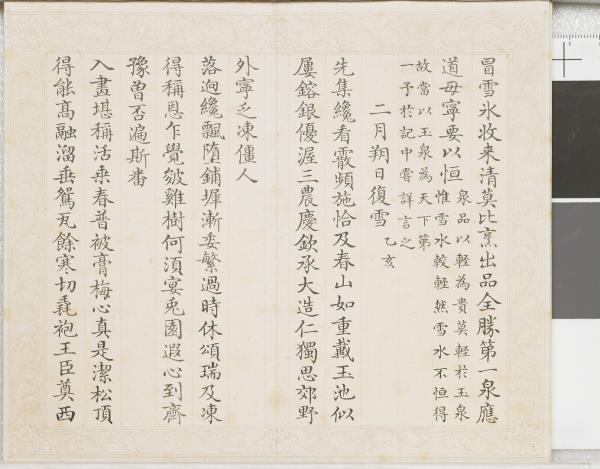 冒雪氷收来清莫比烹出品全勝第一泉應
道毋寧要以恒
泉品以輕為貴莫輕於玉泉
惟雪水較輕然雪水不恒得
故當以玉泉為天下第
一予於記中嘗詳言之
二月朔日復雪 乙亥
先集纔看霰頻施恰及春山如重戴玉池似
屢鎔銀優渥三農慶欽承大造仁獨思郊野
外寧乏凍僵人
落逈纔飄墮鋪墀漸委繁過時休頌瑞及凍
得稱恩乍覺皴雞樹何湏宴兎園遐心到齊
豫曽否遍斯番
入畫堪稱活乗春普被膏梅心真是潔松頂
得能髙融溜垂鴛瓦餘寒切毳袍王臣奠西